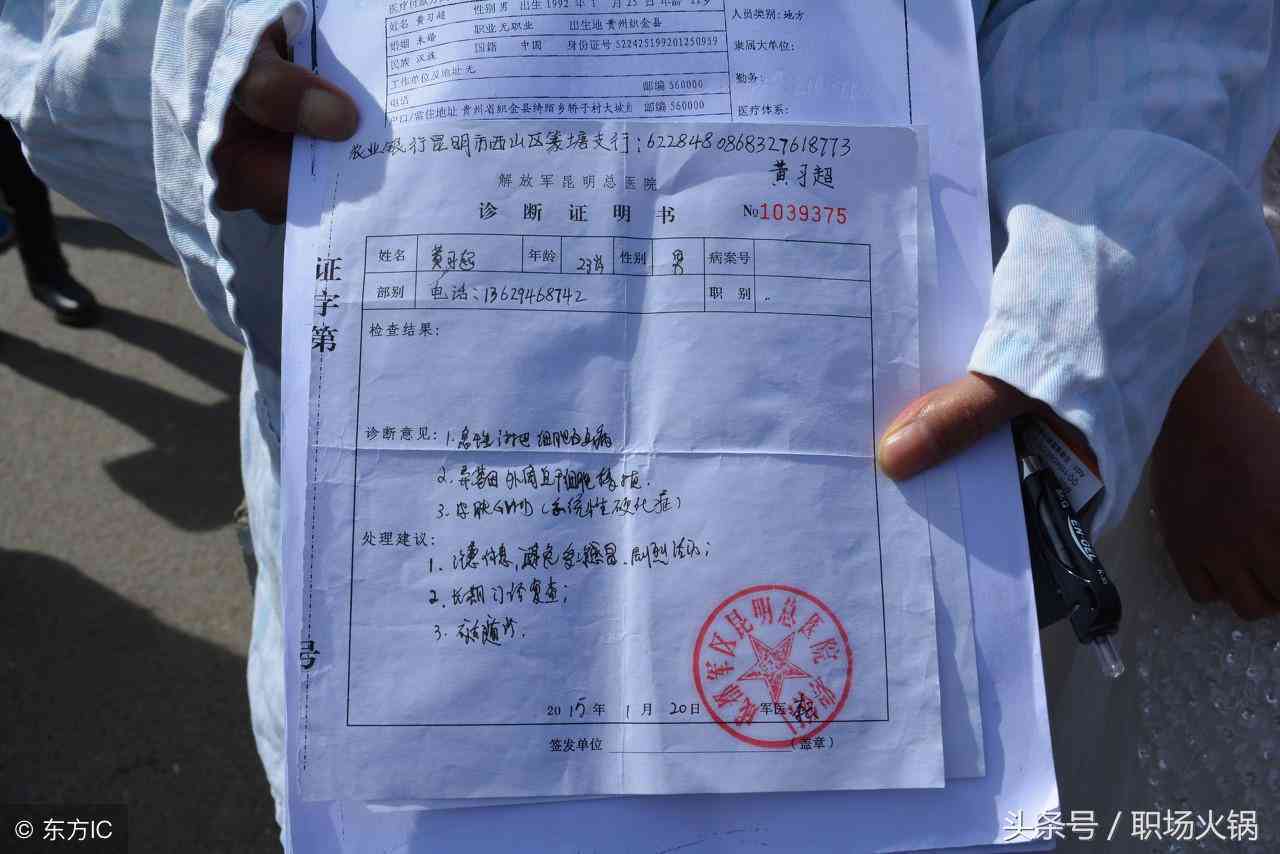 医疗付款方式
姓名 黄习超 性别 男 出生 1992 年 1 月 25 日 年龄 22岁
婚姻 未婚 职业 无职业 出生地 贵州织金县
民族 汉族 国籍 中国 身份证号 522425199201250959
工作单位及地址 无 邮编 560000
电话
户口/常住地址 贵州省织金县绮陌乡桥子村大坡组 邮编 560000
人员类别:地方
隶属大单位:
勤务:
医疗体系:
农业银行昆明市西山区篆塘支行:6228480868327618773
黄习超
解放军昆明总医院
诊断证明书 №1039375
姓名 黄习超 年龄 23岁 性别 男 病案号
部别 电话:13629468742 职别
检查结果:
诊断意见:1.急性淋巴细胞白血病
2.异基因外周血干细胞移植.
3.皮肤GVHD(系统性硬化症)
处理建议:
1.注意休息,避免受凉感冒、剧烈活动;
2.长期门诊复查;
3.随诊.
2015年1月20日 军医
签发单位 (盖章)
证字第
号
成都军区昆明总医院
© 东方IC
头条号 / 职场火锅